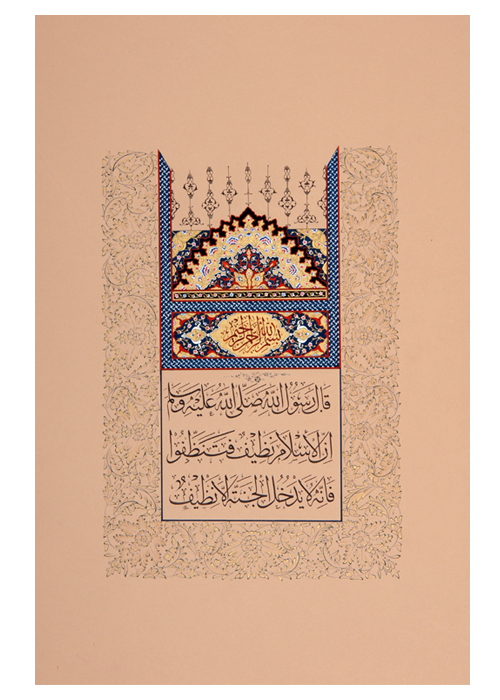 بسم الله الرحمن الرحيم
قال رسول الله صلى الله عليه وسلم
ان الاسلام نظيف فتنظفوا
فانه لا يدخل الجنة الا نظيف